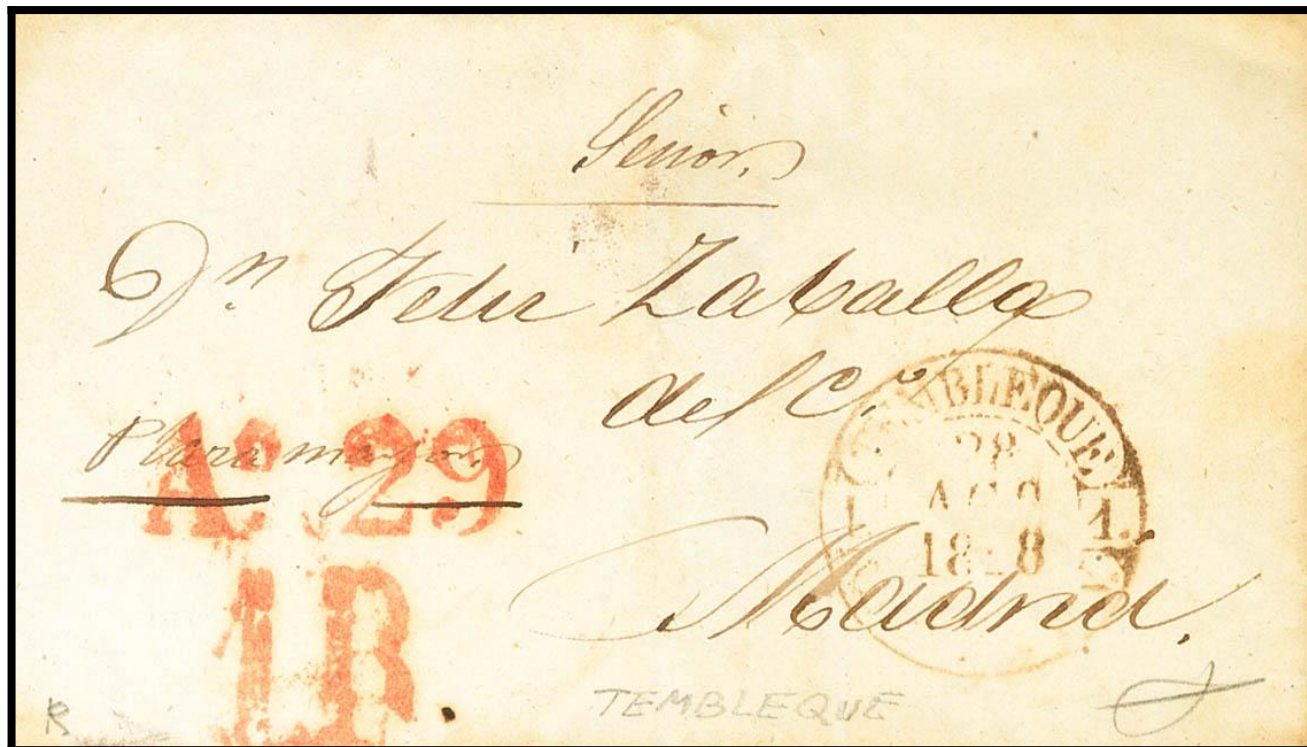 Señor.
Dn. Felix Zaballa
del C.o
Plaza mayor.
Ao. 29
1R
TEMBLEQUE
28
AGO
18 8
1. 1.
Madrid.
TEMBLEQUE
R